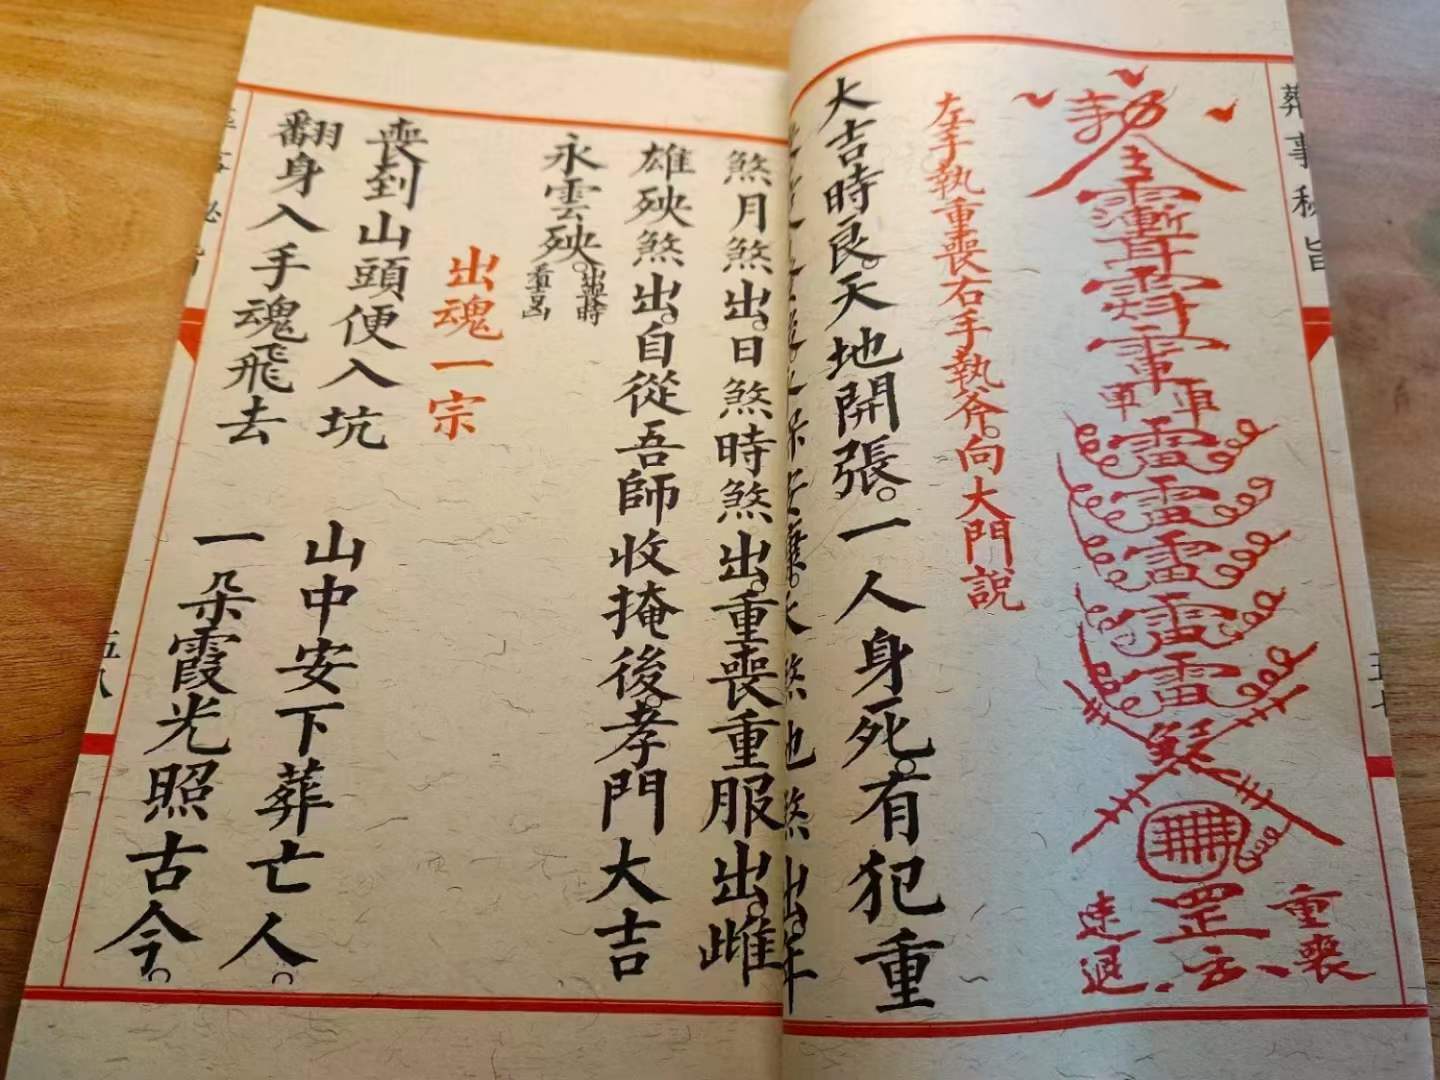 葬事秘旨
敕令
雷
雷
雷
雷
雷
煞
罡
重喪
速退
左手執重喪右手執斧。向大門說
大吉時良。天地開張。一人身死。有犯重
煞月煞出。日煞時煞出。重喪重服出。雌
雄殃煞出。自從吾師收掩後。孝門大吉
永雲殃。出喪時
看吉凶
出魂一宗
喪到山頭便入坑 山中安下葬亡人。
翻身入手魂飛去 一朵霞光照古今。
五八